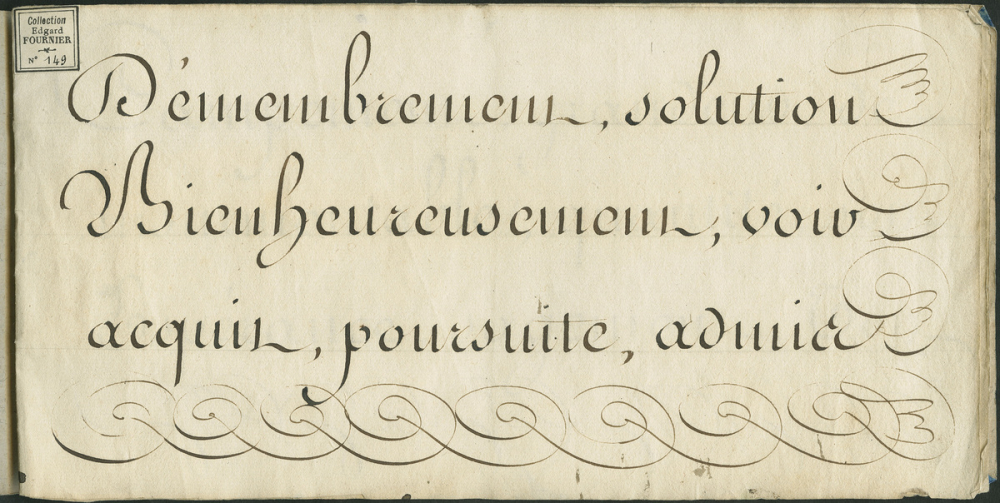 Collection
Edgard
FOURNIER
N° 149
Démembrement, solution
Bienheureusement, voir
acquit, poursuite,